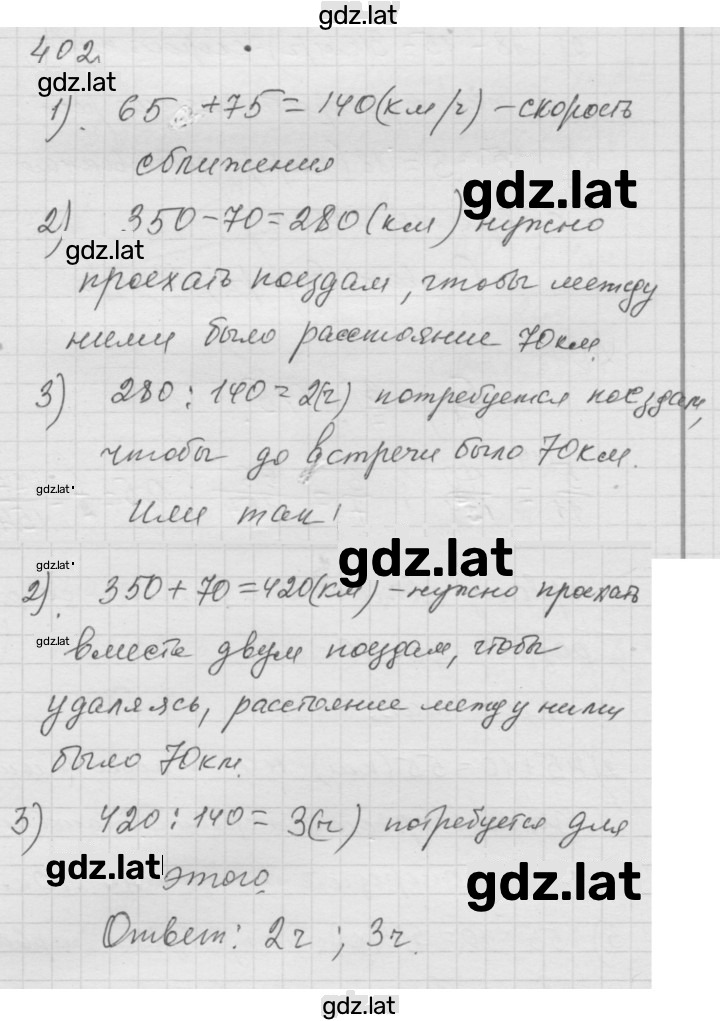 gdz.lat
402.
gdz.lat
1). 65 + 75 = 140 (км/ч) – скорость
сближения
gdz.lat
2) 350 – 70 = 280 (км) нужно
gdz.lat
проехать поездам, чтобы между
ними было расстояние 70 км.
3) 280 : 140 = 2(ч) потребуется поездам,
чтобы до встречи было 70 км.
gdz.lat
Или так!
gdz.lat
gdz.lat
2). 350 + 70 = 420 (км) – нужно проехать
gdz.lat
вместе двум поездам, чтобы
удаляясь, расстояние между ними
было 70 км.
3) 420 : 140 = 3(ч) потребуется для
gdz.lat
этого.
gdz.lat
Ответ: 2ч ; 3ч.
gdz.lat